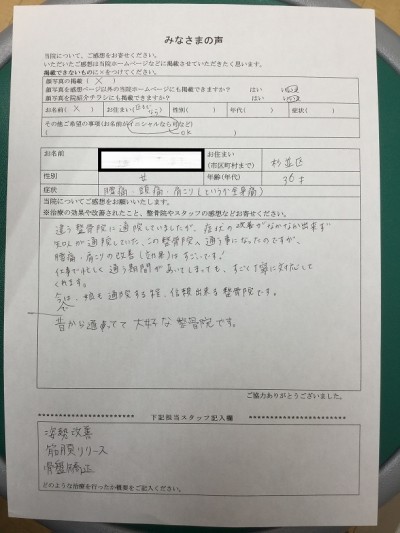 みなさまの声
当院について、ご感想をお寄せください。
いただいたご感想は当院ホームページなどに掲載させていただきたく思います。
掲載できないものに×をつけてください。
顔写真の掲載 ( × )
顔写真を感想ページ以外の当院ホームページにも掲載できますか？ はい いいえ
顔写真を院紹介チラシにも掲載できますか？ はい いいえ
お名前( × ) お住まい( ) 性別( ) 年代( ) 症状( )
その他ご希望の事項(お名前がイニシャルなら可など)
( OK )
お名前 お住まい(市区町村まで) 杉並区
性別 女 年齢(年代) 36才
症状 腰痛・頭痛・肩こり(というか全身痛)
当院についてご感想をお願いいたします。
※治療の効果や改善されたこと、整骨院やスタッフの感想などお寄せください。
違う整骨院に通院していましたが、症状の改善がなかなか出来ず
知人が通院していた、この整骨院へ通う事になったのですが、
腰痛・肩こりの改善(効果)はすごいです。
仕事が忙しく通う期間があいてしまっても、すごく丁寧に対応して
くれます。
今は、娘も通院する程、信頼出来る整骨院です。
昔から通ってて大好きな整骨院です。
ご協力ありがとうございました。
下記担当スタッフ記入欄
姿勢改善
筋膜リリース
骨盤矯正
どのような治療を行ったか概要をご記入ください。